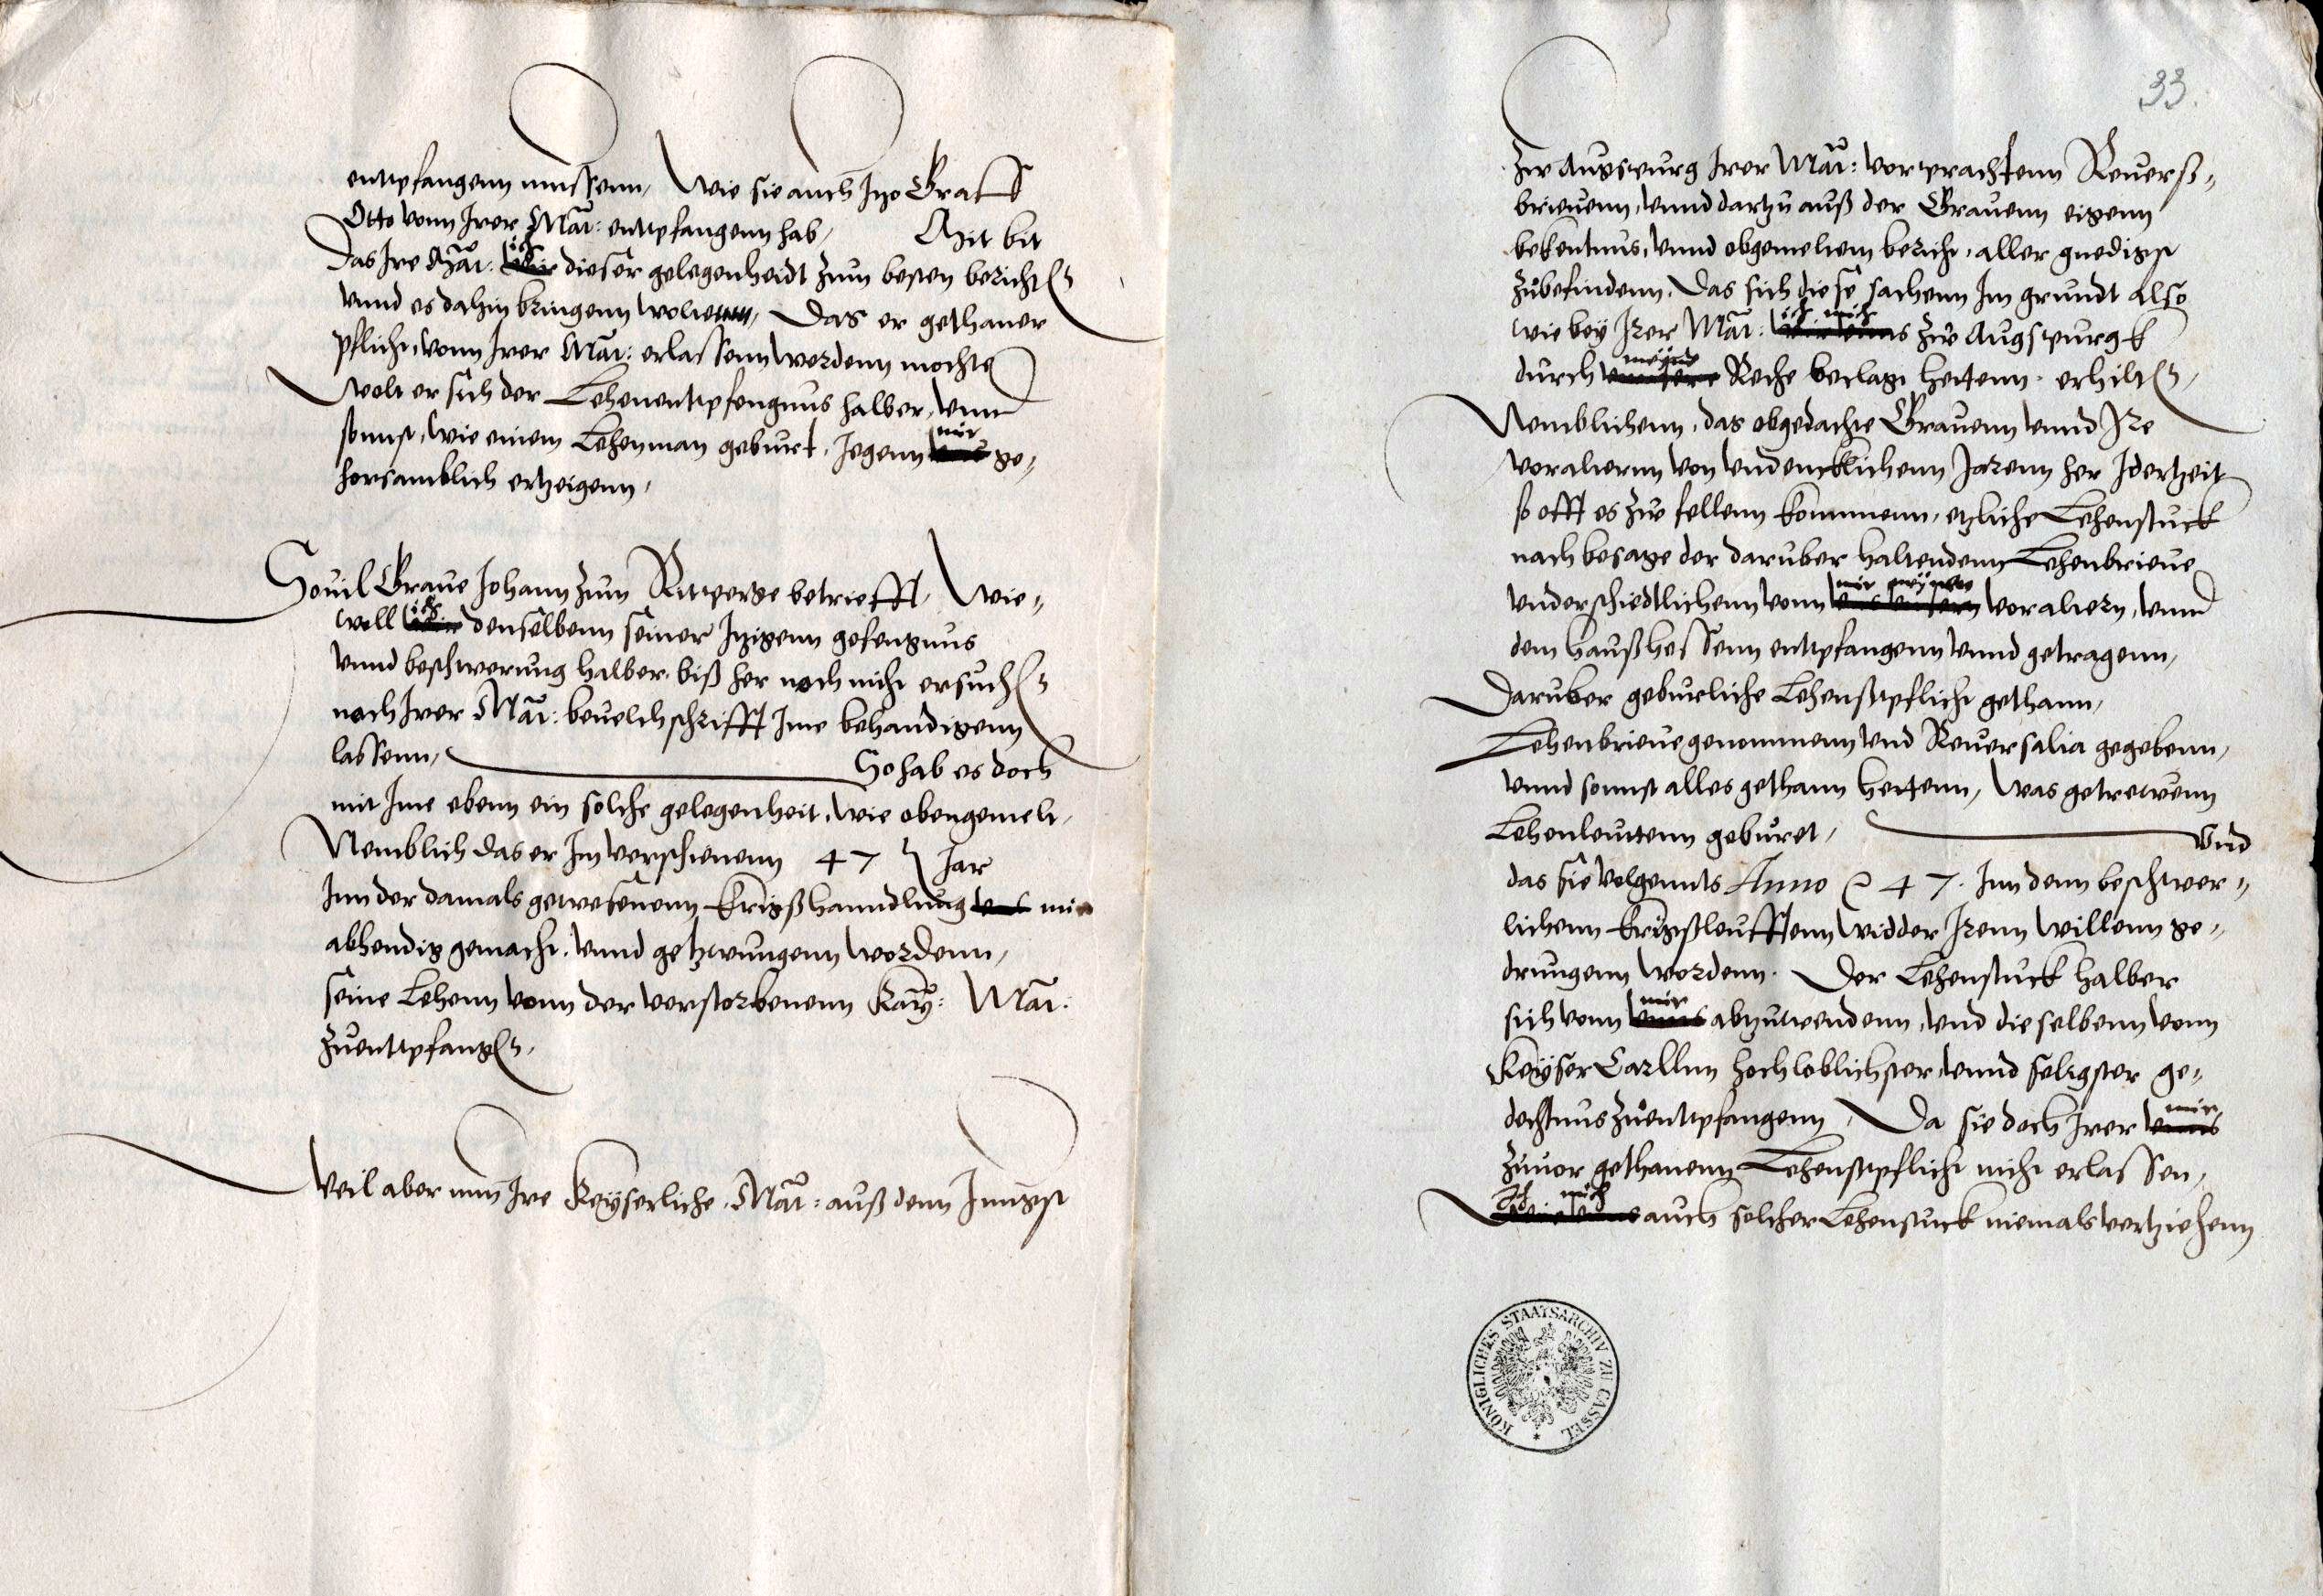 entpfangenn mussenn, Wie sie auch Itzo Graff
Otto vonn Irer Mat: entpfangenn hab, Mit bit
Das Ire Mat: ich dieser gelegenheidt zum besten berichten
vnnd es dahin bringenn wolte, Das er gethaner
pflicht, vonn Irer Mat: erlassenn werdenn mochte
Wolt er sich der Lehenentpfengnus halber, vnnd
sonnst, wie einem Lehenman geburt, Jegenn mir ge„
horsamblich ertzeigenn,
Souil Graue Johann zum Rittperge betriefft, Wie„
woll ich denselbenn seiner Itzigenn gefengnus
vnnd beschwerung halber, biß her noch nicht ersuchen
noch Irer Mat: beuelch schrifft Ime behandigenn
lassenn, So hab es doch
mit Ime ebenn ein solche gelegenheit, wie obengemelt,
Nemblich das er Im verschienenn 47 Jar
Inn der damals gewesenenn krigßhanndlung mir
abhendig gemacht, vnnd getzwungenn wordenn,
seine Lehenn vonn der verstorbenenn Kay: Mat:
zuentpfangen,
Weil aber nun Ire Keyserliche Mat: auß denn Jungst
33.
zw Augspurg Irer Mat: vorprachtenn Reuerß„
brieuenn, vnnd dartzu auß der Grauenn eigenn
bekentnus, vnnd obgemeltem bericht, aller gnedigst
zubefindenn, Das sich diese sachenn Im grundt also
wie bey Irer Mat: ich mich zw Augspurgk
durch meyne Rethe beclagt hettenn, erhiltten,
Nemblichenn, das obgedachte Grauenn vnnd Ire
voralternn von vndencklichenn Jarenn her Idertzeit
so offt es zw fellenn kommenn, etzliche Lehenstuck
nach besage der daruber haltendenn Lehenbrieue
vnderschiedtlichenn vonn mir meynen voraltern, vnnd
dem hauß hessenn entpfangenn vnnd getragenn,
Daruber geburliche Lehenßpflicht gethann,
Lehenbrieue genommenn vnd Reuersalia gegebenn,
vnnd sonnst alles gethann hettenn, Was getrewenn
Lehenleuttenn geburet, Vnd
das sie volgennts Anno 47. Inn denn beschwer„
lichenn krigßleufftenn widder Irenn willenn ge„
drungenn wordenn, Der Lehenstuck halber
sich vonn mir abzuwendenn, vnd die selbenn vonn
Keyser Carllnn hochloblichster, vnnd seligster ge„
dechtnus zuentpfangenn, Da sie doch Irer mir
zuuor gethanenn Lehenßpflicht nicht erlassen,
Ich mich auch solcher Lehenstuck niemals vertziehenn
KÖNIGLICHES STAATSARCHIV ZU CASSEL